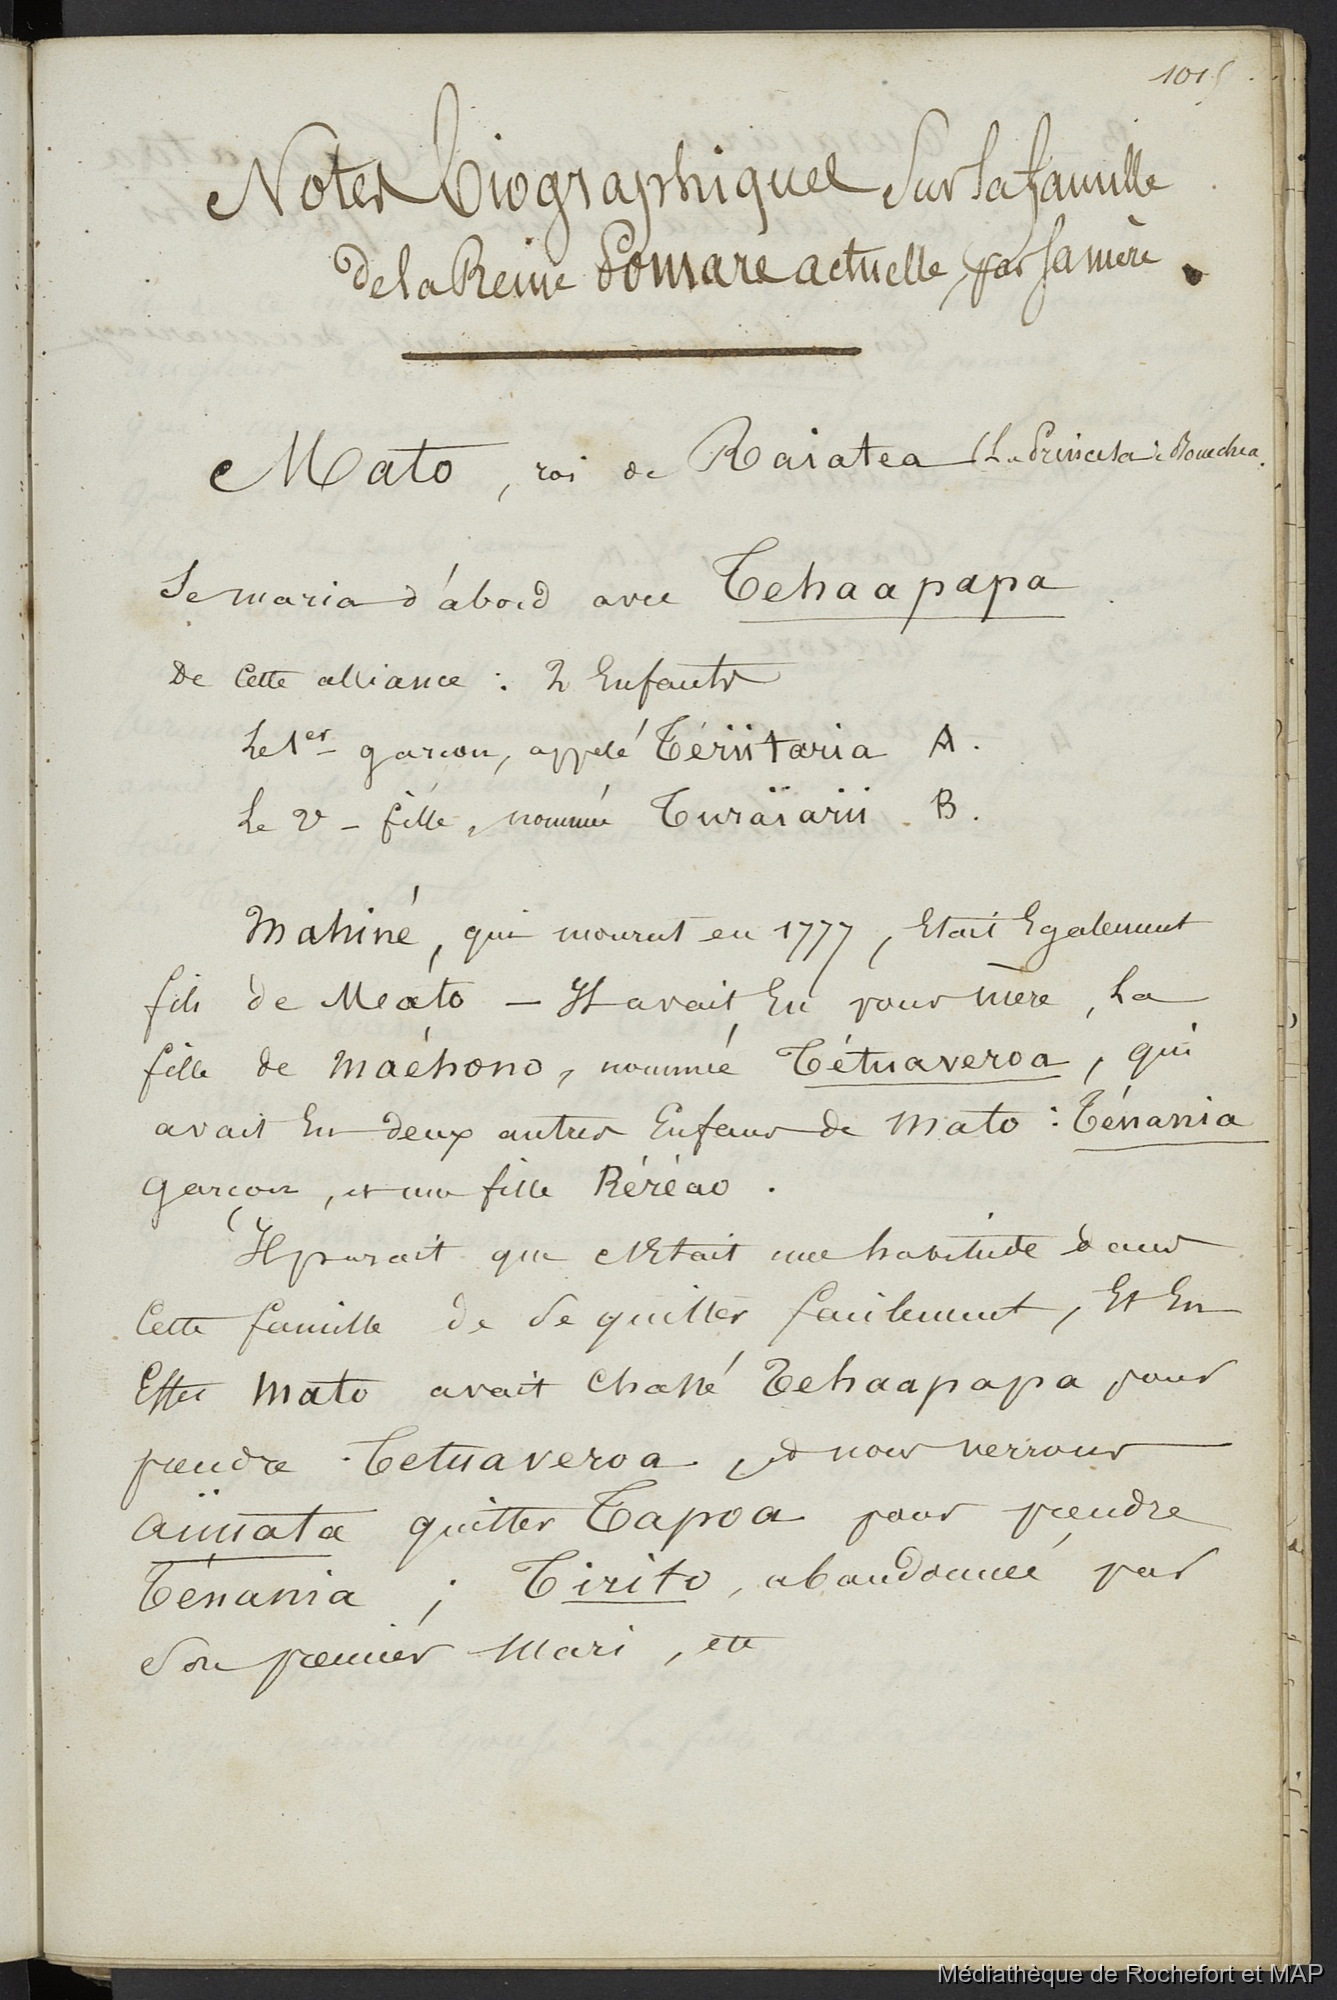 1015
Notes biographiques sur la famille
de la Reine Pomare actuelle, par sa mère.
Mato, roi de Raiatea (La Princesa : Bonechea.
Se maria d'abord avec Tehaapapa
De cette alliance : 2 Enfants
Le 1er garcon, appelé Tériitaria A.
Le 2d - fille, nommée Turaïarii. B.
Mahiné, qui mourut en 1777, Etait Egalement
fils de Meáto - Il avait Eu pour mère, La
fille de Maéhono, nommée Tétuaveroa, qui
avait Eu deux autres Enfans de Mato : Ténania
garçon, et une fille Réréao.
Il parait que c'Etait une habitude dans
Cette famille de se quitter facilement, Et En
Effet Mato avait Chassé Tehaapapa pour
prendre Tetuaveroa, et nous verrons
aïmata quitter Tapoa pour prendre
Ténania ; Tirito, abandonnée par
son premier Mari, etc
Médiathèque de Rochefort et MAP